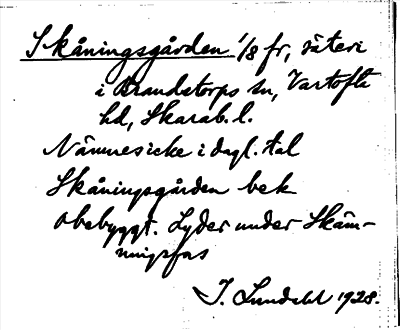 Skåningsgården 1/8 fr, säteri
i Brandstorps sn, Vartofta
hd, Skarab. l.
Nämnes icke i dagl. tal
Skåningsgården bek
obebyggt. Lyder under Skäm-
ningsfors
J. Lundahl 1928.